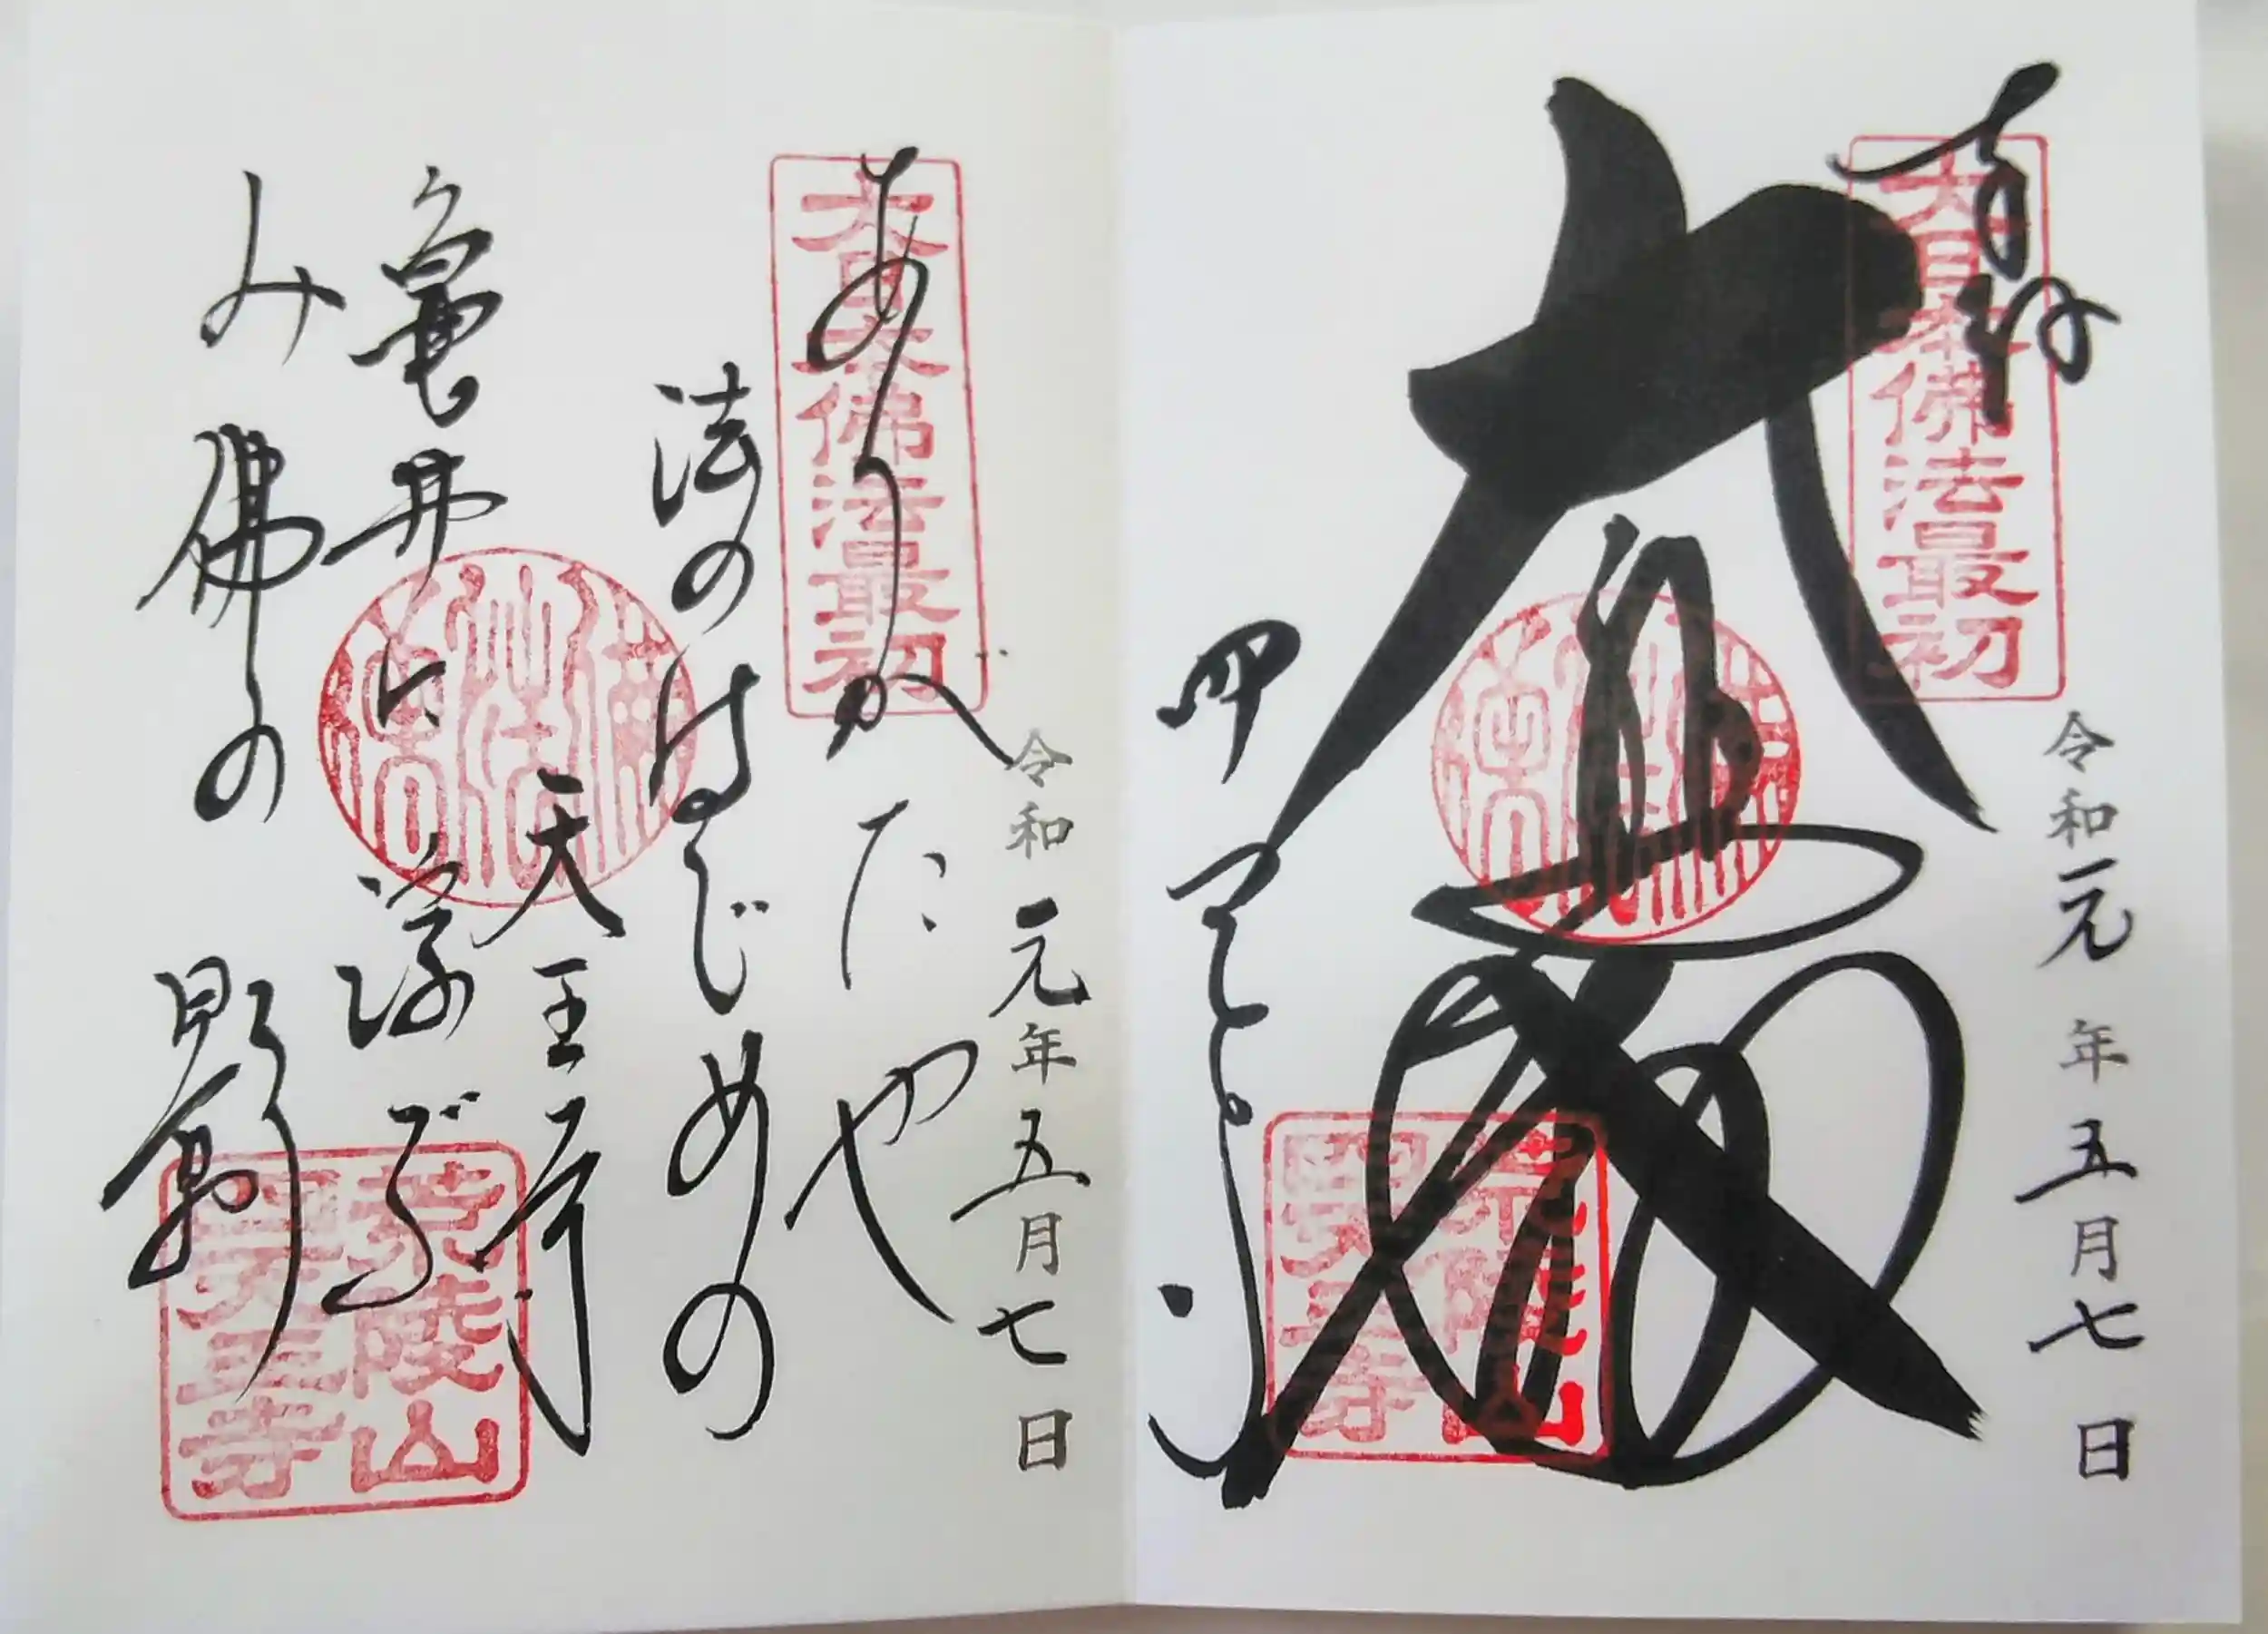 奉拝
大日本佛法最初
令和元年五月七日
大悲殿
四天王寺
荒陵山
四天王寺
大日本佛法最初
令和元年五月七日
ありかたや
法のはじめの
天王寺
亀井に浮ぶ
み佛の
影
荒陵山
四天王寺